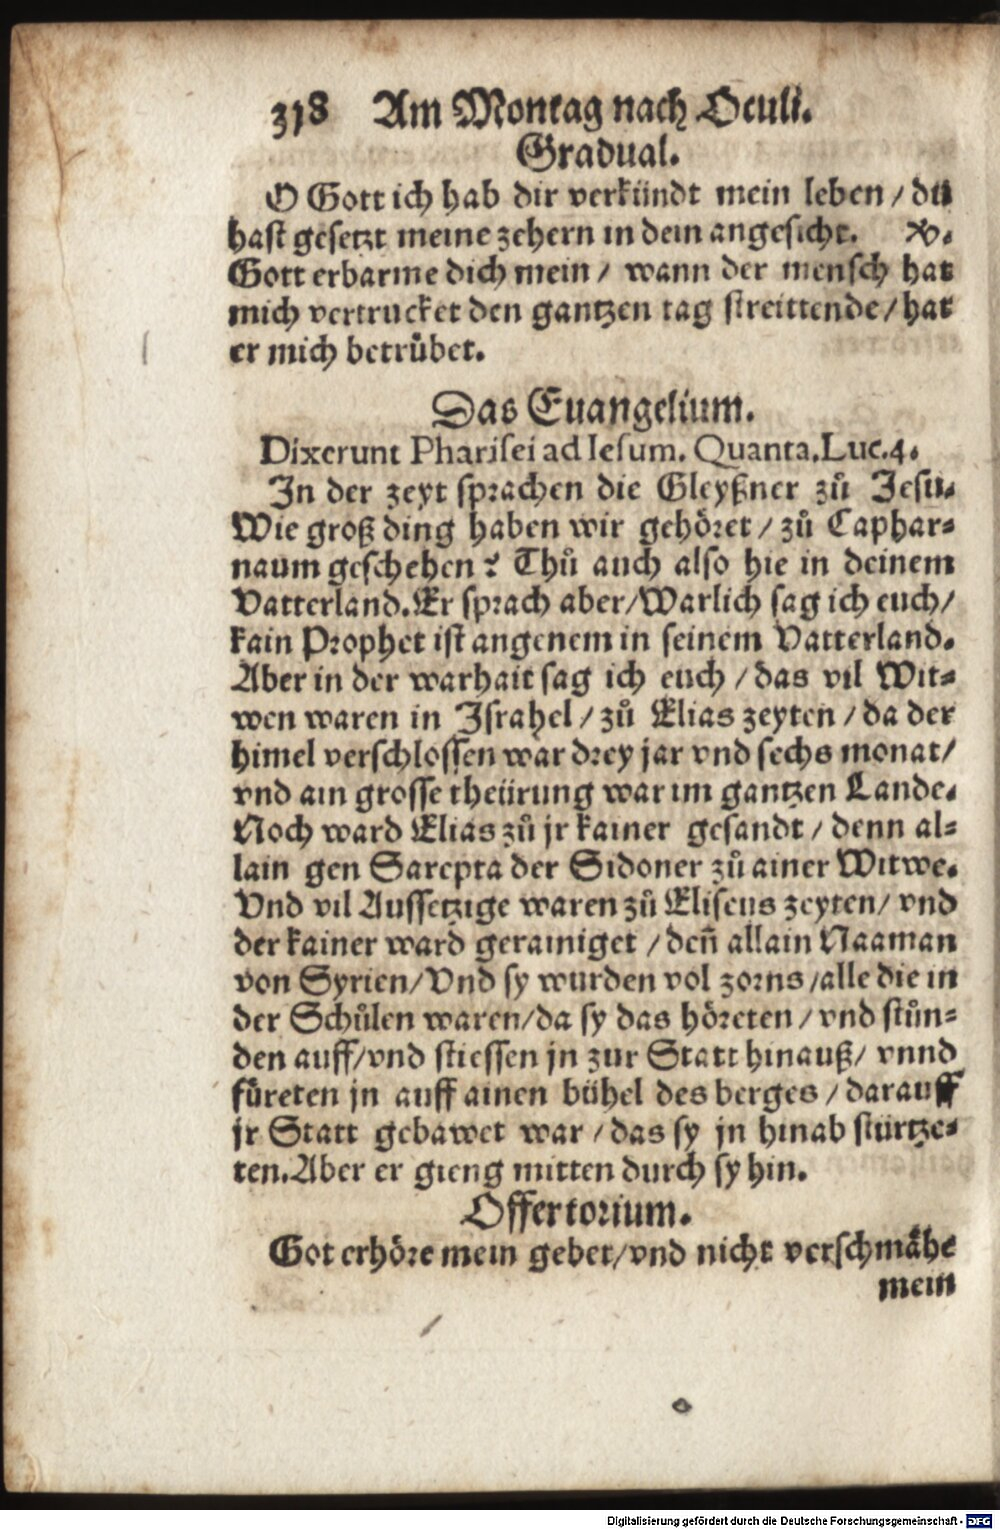 318 Am Montag nach Oculi.
Gradual.
O Gott ich hab dir verkündt mein leben / du
hast gesetzt meine zehern in dein angesicht. V.
Gott erbarme dich mein / wann der mensch hat
mich vertrucket den gantzen tag streittende / hat
er mich betrůbet.
Das Euangelium.
Dixerunt Pharisei ad Iesum. Quanta. Luc. 4.
In der zeyt sprachen die Gleyßner zů Jesu.
Wie groß ding haben wir gehöret / zů Caphar-
naum geschehen? Thů auch also hie in deinem
Vatterland. Er sprach aber / Warlich sag ich euch /
kain Prophet ist angenem in seinem Vatterland.
Aber in der warhait sag ich euch / das vil Wit-
wen waren in Israhel / zů Elias zeyten / da der
himel verschlossen war drey jar vnd sechs monat /
vnd ain grosse theürung war im gantzen Lande.
Noch ward Elias zů jr kainer gesandt / denn al-
lain gen Sarepta der Sidoner zů ainer Witwe.
Vnd vil Aussetzige waren zů Eliseus zeyten / vnd
der kainer ward gerainiget / deñ allain Naaman
von Syrien / Vnd sy wurden vol zorns / alle die in
der Schůlen waren / da sy das höreten / vnd stůn-
den auff / vnd stiessen jn zur Statt hinauß / vnnd
fůreten jn auff ainen bühel des berges / darauff
jr Statt gebawet war / das sy jn hinab stürtze-
ten. Aber er gieng mitten durch sy hin.
Offertorium.
Got erhöre mein gebet / vnd nicht verschmåhe
mein
Digitalisierung gefördert durch die Deutsche Forschungsgemeinschaft - DFG